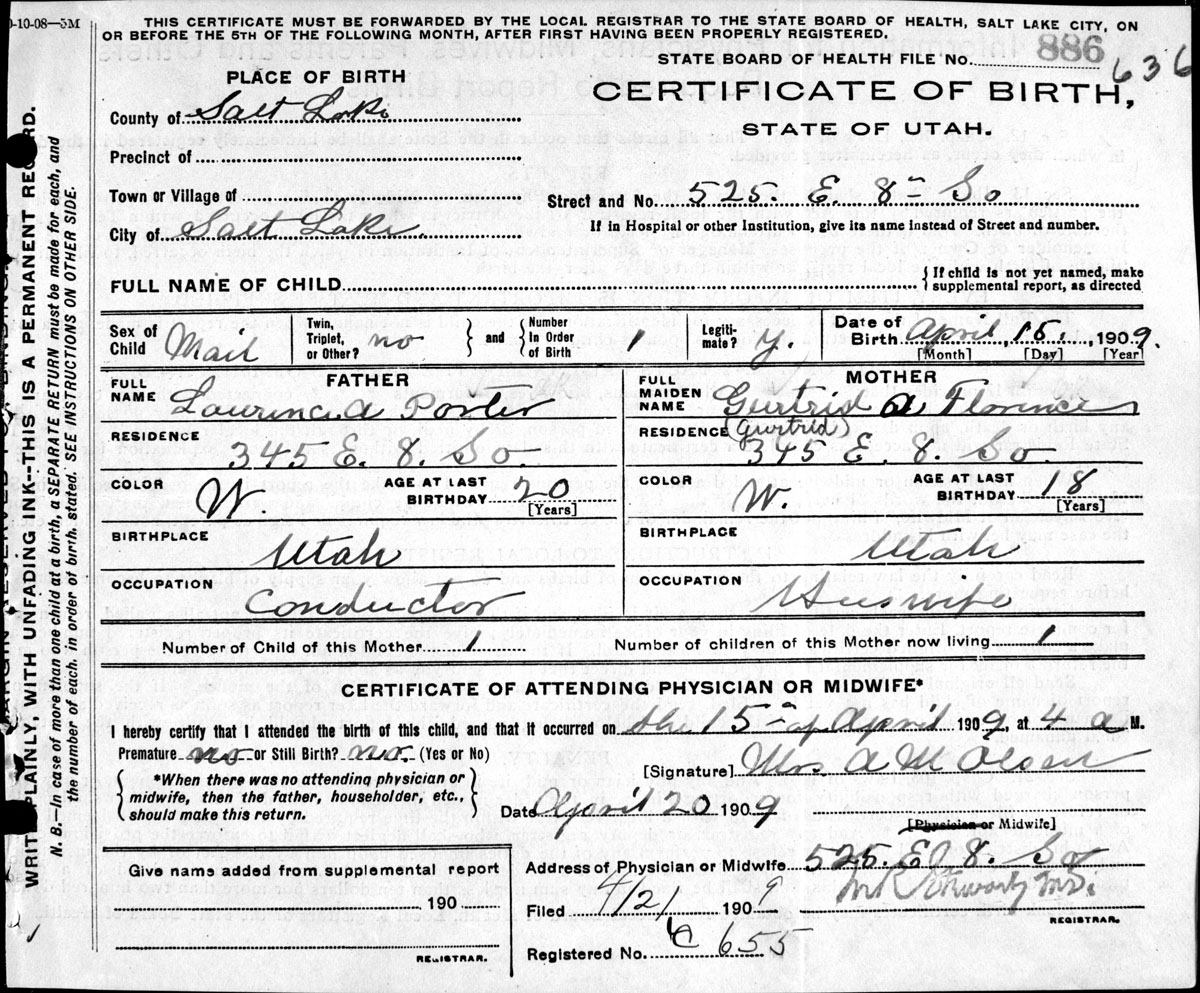 0-10-08—5M
THIS CERTIFICATE MUST BE FORWARDED BY THE LOCAL REGISTRAR TO THE STATE BOARD OF HEALTH, SALT LAKE CITY, ON
OR BEFORE THE 5TH OF THE FOLLOWING MONTH, AFTER FIRST HAVING BEEN PROPERLY REGISTERED.
STATE BOARD OF HEALTH FILE No. 886 636
PLACE OF BIRTH
CERTIFICATE OF BIRTH,
STATE OF UTAH.
County of Salt Lake
Precinct of
Town or Village of
Street and No. 525. E. 8th So
City of Salt Lake
If in Hospital or other Institution, give its name instead of Street and number.
FULL NAME OF CHILD
{If child is not yet named, make supplemental report, as directed
Sex of Child Mail
Twin, Triplet, or Other? no
} and { Number in Order of Birth 1
Legitimate? y.
Date of Birth April, 15, 1909.
[Month] [Day] [Year]
FATHER
FULL NAME Laurince A Porter
MOTHER
FULL MAIDEN NAME Gurtrid A Florence
(Gurtrid)
RESIDENCE 345 E. 8. So.
RESIDENCE 345 E. 8. So
COLOR W
AGE AT LAST BIRTHDAY 20
[Years]
COLOR W.
AGE AT LAST BIRTHDAY 18
[Years]
BIRTHPLACE Utah
BIRTHPLACE Utah
OCCUPATION Conductor
OCCUPATION Huiswife
Number of Child of this Mother 1
Number of children of this Mother now living 1
CERTIFICATE OF ATTENDING PHYSICIAN OR MIDWIFE*
I hereby certify that I attended the birth of this child, and that it occurred on the 15th of April 1909, at 4 a M.
Premature no or Still Birth? no. (Yes or No)
{*When there was no attending physician or midwife, then the father, householder, etc., should make this return.}
[Signature] Mrs A M Olsen
Date April 20 1909
[Physician or Midwife]
Give name added from supplemental report
190
REGISTRAR.
Address of Physician or Midwife 525. E 8. So
Filed 4/21 1909
M.D.
REGISTRAR.
Registered No. 655
MARGIN RESERVED FOR BINDING
WRITE PLAINLY, WITH UNFADING INK--THIS IS A PERMANENT RECORD.
N. B.—In case of more than one child at a birth, a SEPARATE RETURN must be made for each, and
the number of each, in order of birth, stated. SEE INSTRUCTIONS ON OTHER SIDE.